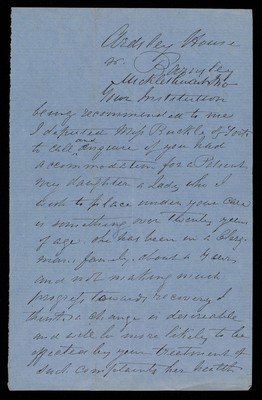 Ardsley House
nr. Barnsley
Your Institution
being recommended to me
I deputed Miss Buckly of
to call and Enquire if you had
accommodation for a Patient
my daughter a Lady who I
wish to place under your Care
is something over twenty years
of age. she has been in a Clerg
mans family. about a 4 years
and not making much
progress towards recovery I
think a change is desireable
and will be more likely to be
effected by your treatment of
such complaints her health